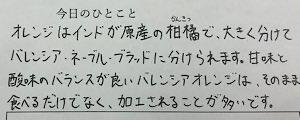 今日のひとこと
オレンジはインドが原産の柑橘で、大きく分けて
バレンシア・ネーブル・ブラッドに分けられます。甘味と
酸味のバランスが良いバレンシアオレンジは、そのまま
食べるだけでなく、加工されることが多いです。